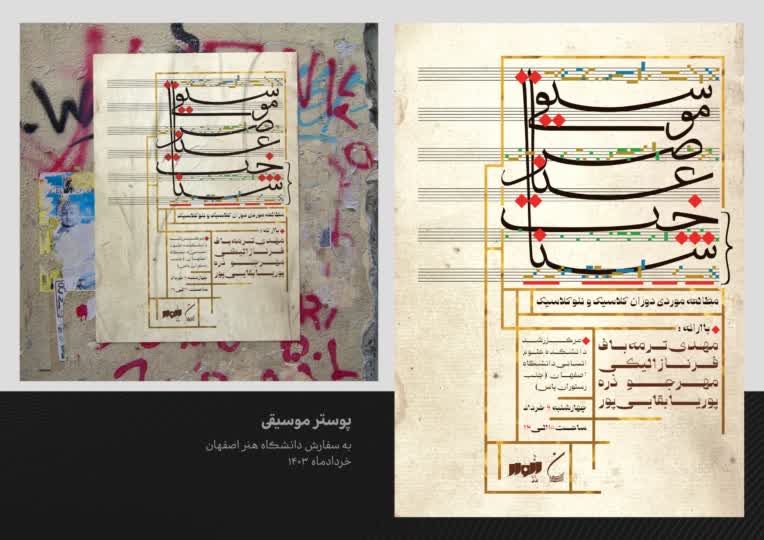 شناخت
عناصر
موسیقی
مطالعه موردی دوران کلاسیک و نئوکلاسیک
با ارائه:
مهدی ترمه‌باف
فرناز الیکی
مهرجو ذره
پوریا بقایی‌پور
مرکز رشد
دانشکده علوم
انسانی دانشگاه
اصفهان (جنب
رستوران یاس)
چهارشنبه ۹ خرداد
پوستر موسیقی
به سفارش دانشگاه هنر اصفهان
خردادماه ۱۴۰۳